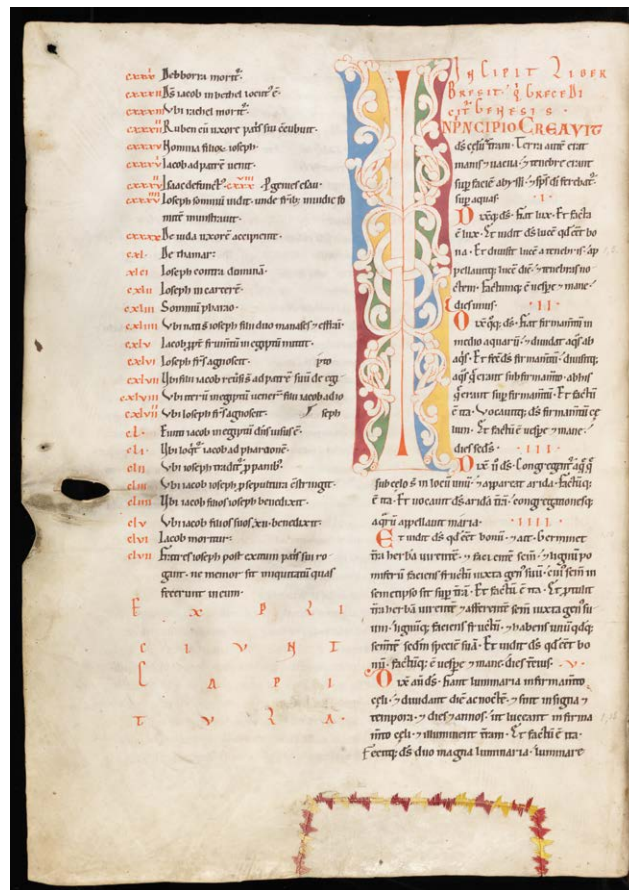 Debborra morit᷑.
cxxxii Ds iacob in bethel locut᷑ ē.
cxxxiii Vbi rachel morit᷑.
Ruben cū uxore pat᷑s sui
Nomina filioꝝ ioseph.
Iacob ad patrē uenit.
Isaac defunct᷑.
Ioseph somniū uidit. unde
mitē ministrauit.
De iuda uxorē accipient.
cxl. De thamar.
cxli Ioseph contra dominā.
cxlii Ioseph in carcerē.
cxliii Somniū pharao.
cxliiii Vbi nati s̄ ioseph filii duo manases ⁊ effraī.
cxlv Iacob frumtū in egyptū mittit.
cxlvi Ioseph fr̄s agnoscit.
cxlvii Vbi filii iacob reūsi s̄ ad patrē suū de egi
pto
cxlviii Vbi iterū in egyptū uener̄ filii iacob ad io
seph
Vbi ioseph fr̄s agnoscit.
cl. Eunti iacob in egyptū dn̄s uisus ē.
cli Vbi loq᷑t᷑ iacob ad pharaonē.
clii Vbi ioseph
cliii Vbi iacob ioseph ꝓ sepultura cstringit.
cliiii Vbi iacob filios ioseph benedixit.
clv Vbi iacob filios suos .xii. benedixit.
clvi Iacob moritur.
clvii Fratres ioseph post exitum pat᷑s sui ro
gant. ne memor sit iniquitatū quas
fecerunt in eum.
E X P L I
C I U N T
C A P I
T U L A .
INCIPIT LIBER
BRESIT. q̇ GRECE DI
CIT᷑ GENESIS.
IN PNCIPIO CREAVIT
ds cęlū ⁊ t̄ram. Terra autē erat
inanis ⁊ uacua. ⁊ tenebrę erant
sup faciē abyssi. ⁊ sp̄s dī ferebat᷑
sup aquas. .I.
Dixitq; ds. fiat lux. Et facta
ē lux. Et uidit ds lucē qd eēt bo
na. Et diuisit lucē a tenebris. ap
pellauitq; lucē diē. ⁊ tenebras no
ctem. factumq; ē uespe ⁊ mane.
dies unus. .II.
Dixit q̇q; ds. fiat firmam̄tū in
medio aquarū. ⁊ diuidat aq̄s ab
aq̄s. Et fec̄ ds firmam̄tū. diuisitq;
aq̄s q̄ erant sub firmam̄to. ab his
q̄ erant sup firmam̄tū. Et factū
ē ita. Vocauitq; ds firmam̄tū cę
lum. Et factū ē uespe ⁊ mane.
dies sec̄ds. .III.
Dixit ū ds. Congregent᷑ aq̄ q̄
sub cęlo s̄ in locū unū. ⁊ appareat arida. factūq;
ē ita. Et uocauit ds aridā t̄rā. congregationesq;
aqrū appellauit maria. .IIII.
Et uidit ds qd eēt bonū. ⁊ ait. Germinet
t̄ra herbā uirentē. ⁊ facientē sem̄. ⁊ lignū po
miferū faciens fructū iuxta gen᷑ suū. cui᷑ sem̄ in
semetipso sit sup t̄rā. Et factū ē ita. Et ptulit
t̄ra herbā uirentē ⁊ afferentē sem̄ iuxta gen᷑ su
um. lignūq; faciens fructū. ⁊ habens unū qdq;
sem̄tē scdm speciē suā. Et uidit ds qd eēt bo
nū. factūq; ē uespe ⁊ mane. dies t̄tius. .V.
Dixit aū ds. fiant luminaria in firmam̄to
cęli. ⁊ diuidant diē ac noctē. ⁊ sint in signa ⁊
tempora. ⁊ dies ⁊ annos. ut luceant in firma
m̄to cęli. ⁊ illuminent t̄ram. Et factū ē ita.
Fecitq; ds duo magna luminaria. luminare